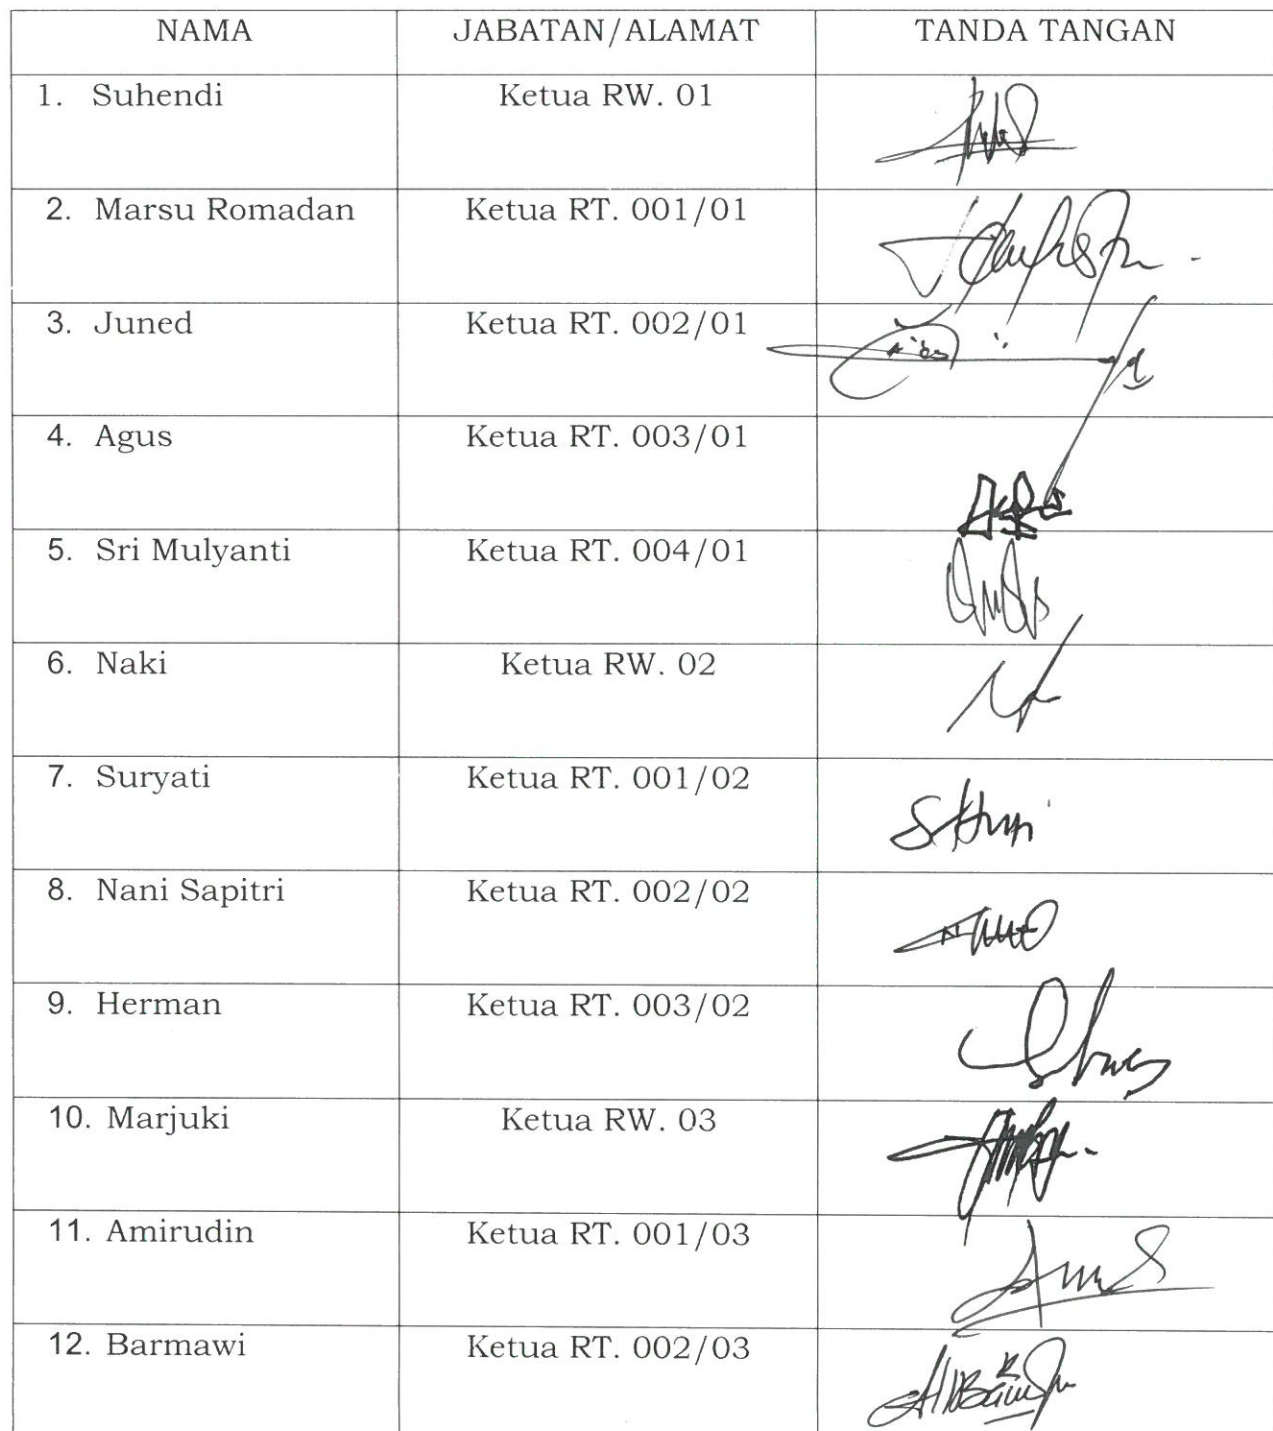 NAMA JABATAN/ALAMAT TANDA TANGAN
1. Suhendi Ketua RW. 01
2. Marsu Romadan Ketua RT. 001/01
3. Juned Ketua RT. 002/01
4. Agus Ketua RT. 003/01
5. Sri Mulyanti Ketua RT. 004/01
6. Naki Ketua RW. 02
7. Suryati Ketua RT. 001/02
8. Nani Sapitri Ketua RT. 002/02
9. Herman Ketua RT. 003/02
10. Marjuki Ketua RW. 03
11. Amirudin Ketua RT. 001/03
12. Barmawi Ketua RT. 002/03